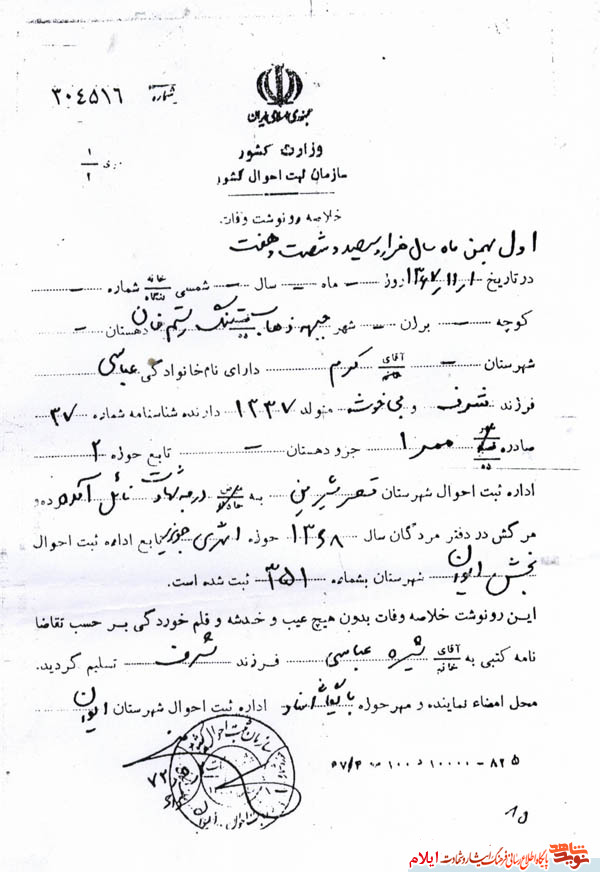 شماره ۳۰۴۵۱۶
جمهوری اسلامی ایران
وزارت کشور
سازمان ثبت احوال کشور
۱
۲
خلاصه رونوشت وفات
اول بهمن ماه سال هزار و سیصد و شصت و هفت
در تاریخ ۱۳۶۷/۱۱/۱ روز – ماه – سال – شمسی خانه شماره –
کوچه – برزن – شهر جبهه دهستان –
شهرستان – آقای خانم کرم دارای نام خانوادگی عباسی
فرزند شرف و متولد ۱۳۳۷ دارنده شناسنامه شماره ۳۷
صادره جزو دهستان – تابع حوزه ۲
اداره ثبت احوال شهرستان قصرشیرین به درجه شهادت نائل آمده و
مرگش در دفتر مردگان سال ۱۳۶۸ حوزه تابع اداره ثبت احوال
بخش ایوان شهرستان بشماره ۳۵۱ ثبت شده است.
این رونوشت خلاصه وفات بدون هیچ عیب و خدشه و قلم خوردگی بر حسب تقاضا
نامه کتبی به آقای خانم عباسی فرزند شرف تسلیم گردید.
محل امضاء نماینده و مهر حوزه اداره ثبت احوال شهرستان ایوان
سازمان ثبت احوال کشور
۸۲۵ – ۱۰۰۰۰
نوید شاهد
پایگاه اطلاع رسانی فرهنگ ایثار و شهادت ایلام